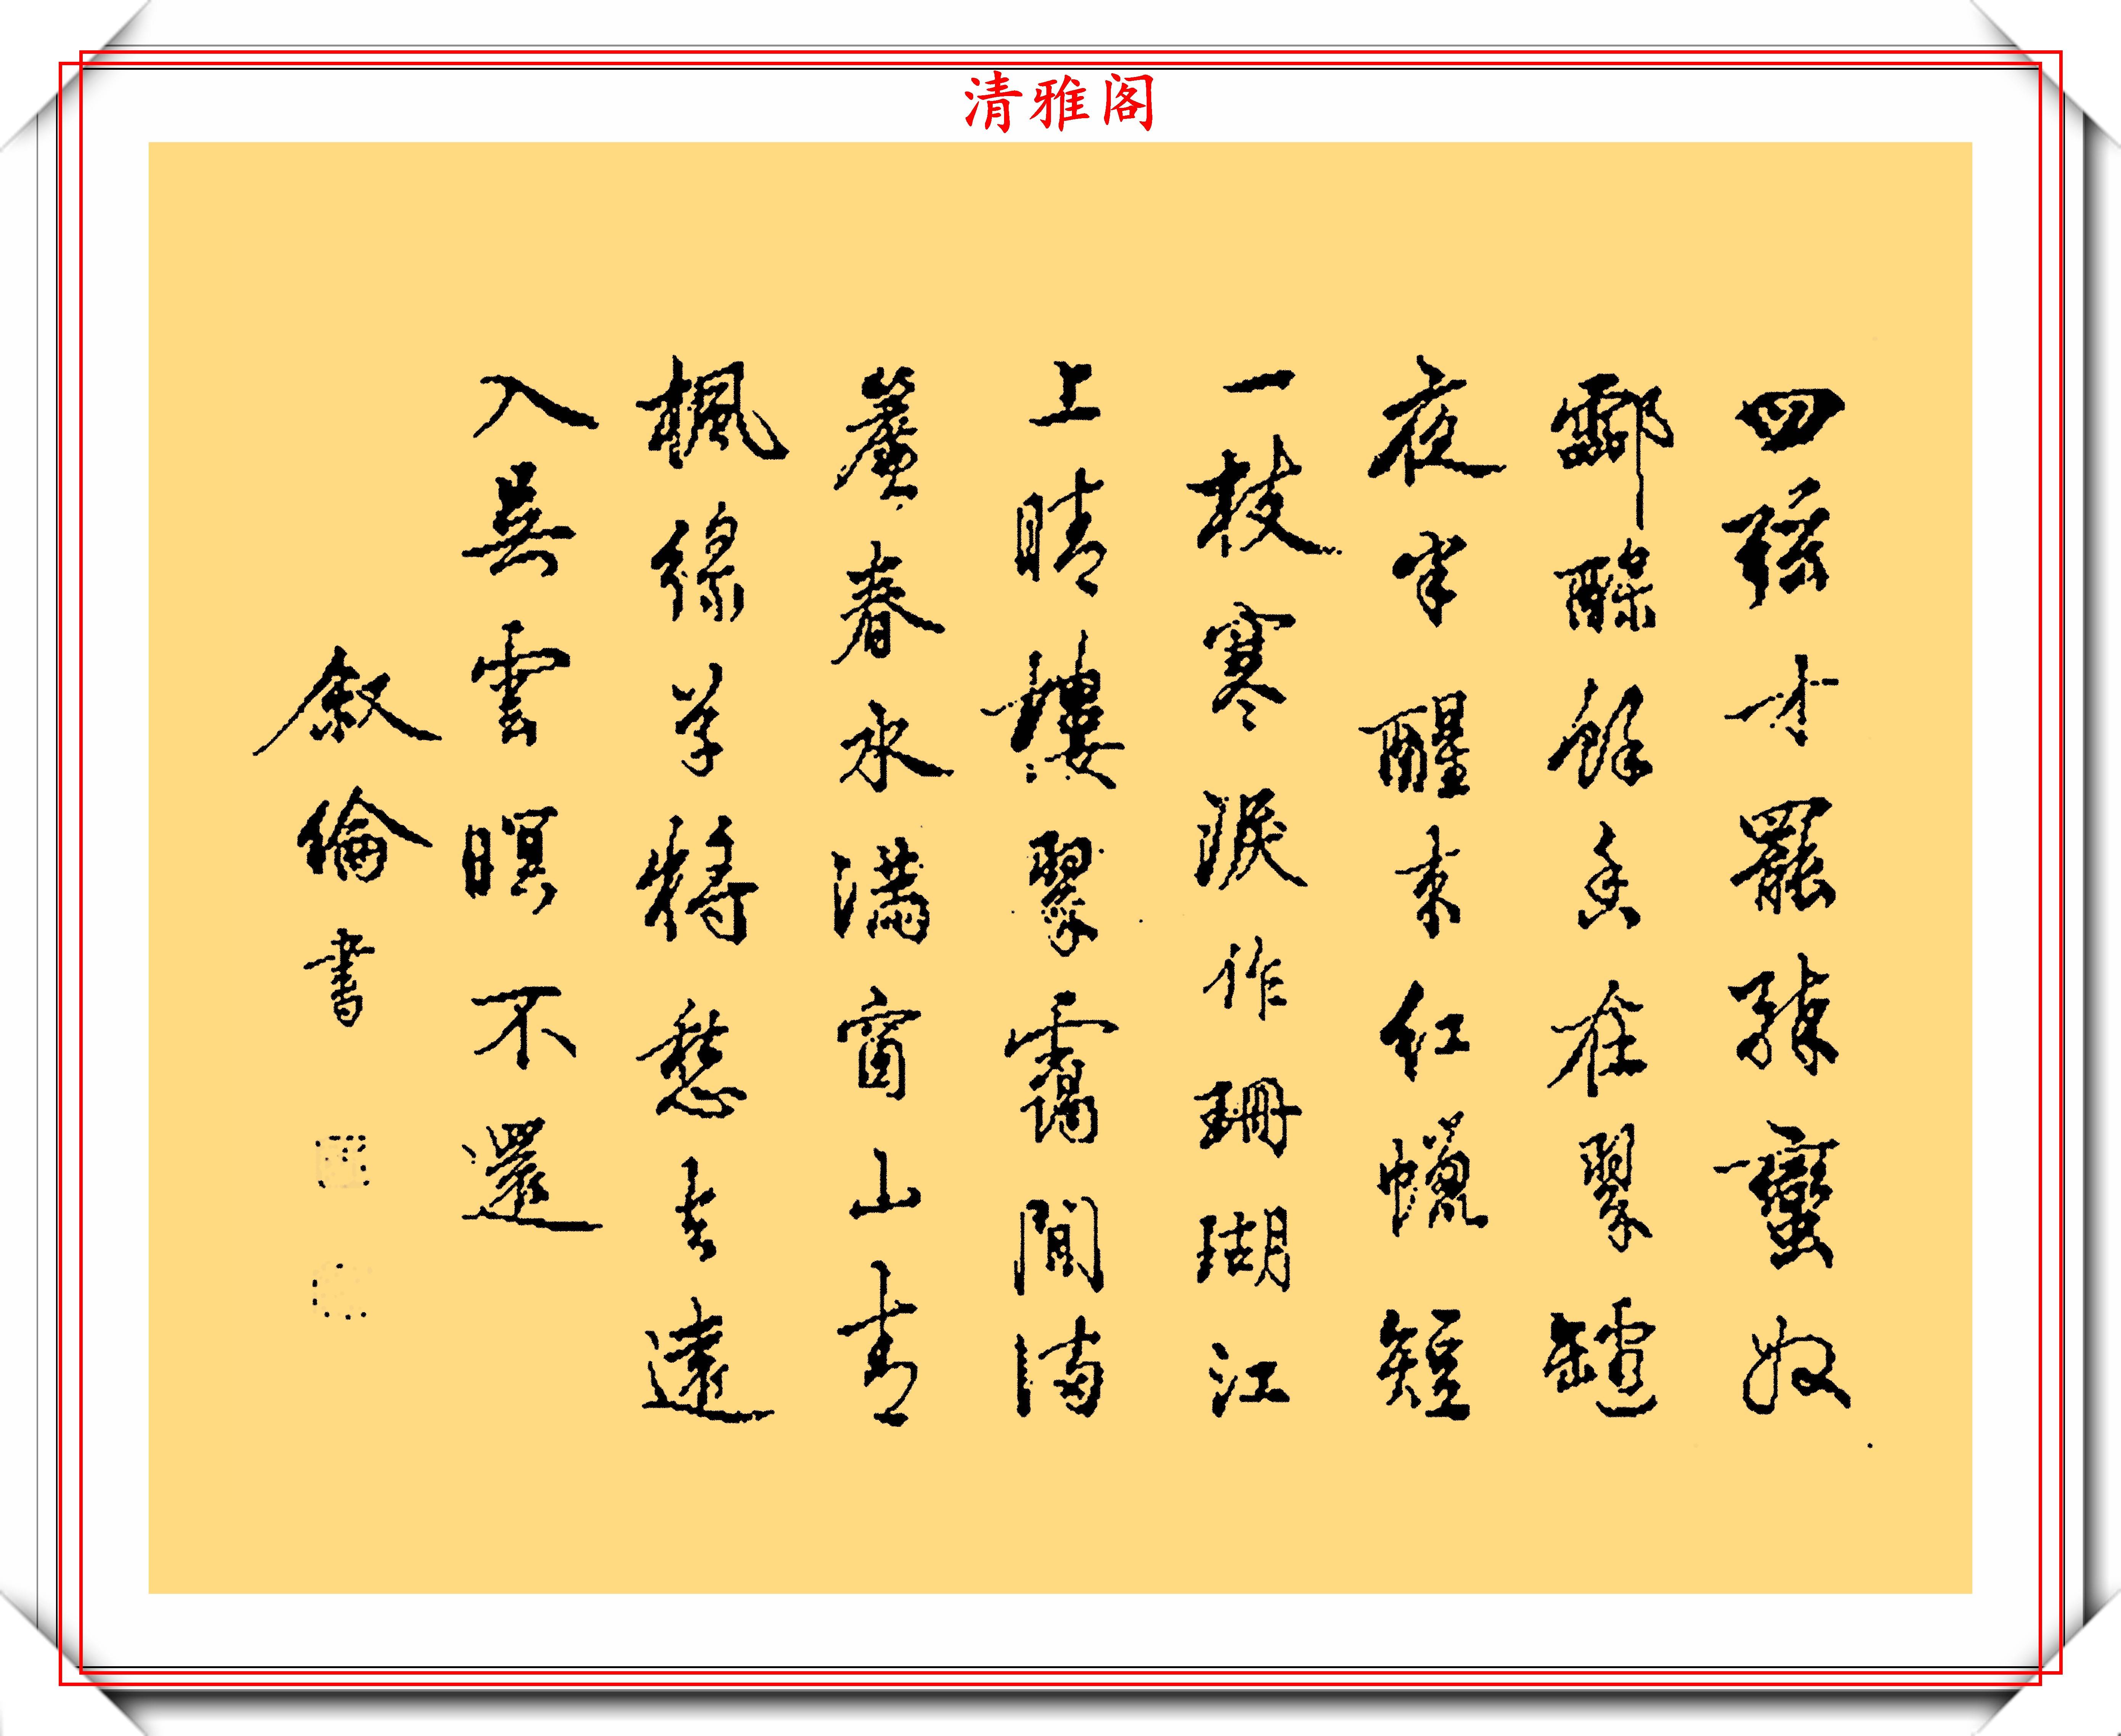 清雅阁
四弦才罷醉蠻奴
酃醁餘香在翠罏
夜半醒來紅蠟短
一枝寒淚作珊瑚江
上晴樓翠靄間滿
簾春水滿窗山青
楓綠草將愁去遠
入吳雲暝不還
叙倫書